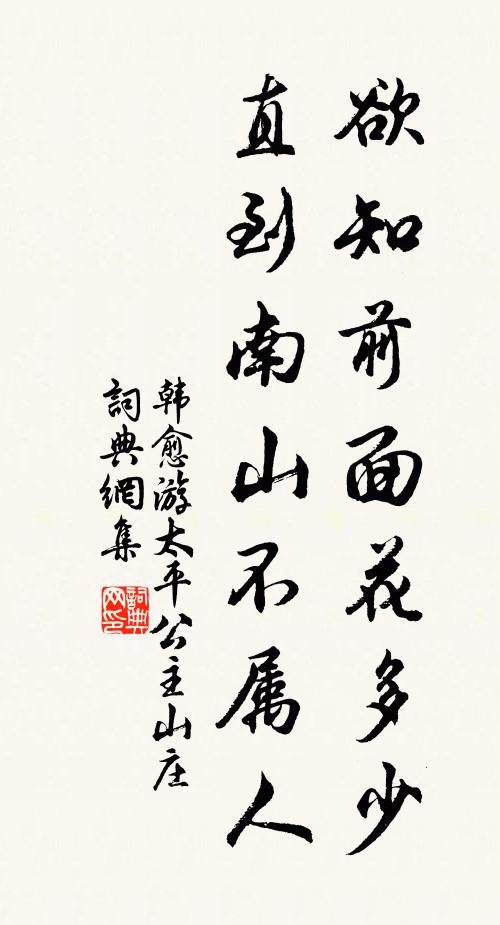 欲知前面花多少
直到南山不属人
韩愈游太平公主山庄
詞典網集
詞典网印